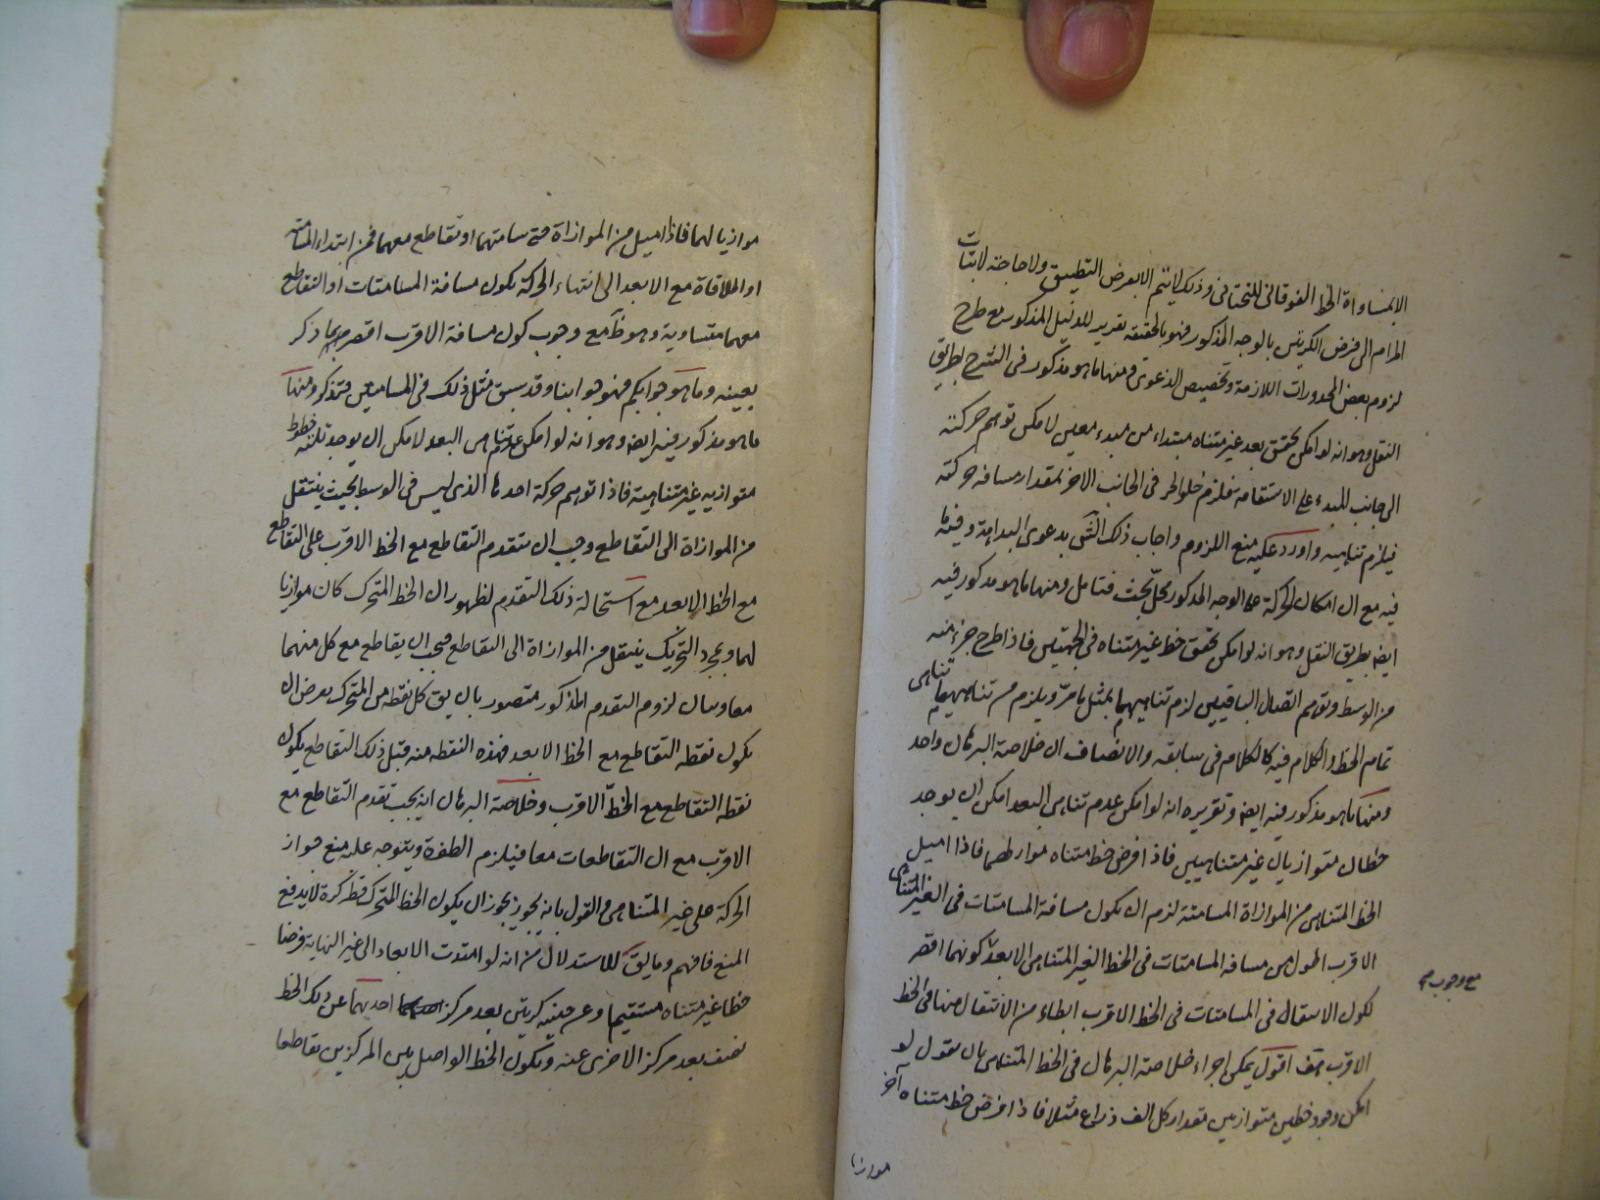 الابمساواة الخط الفوقانى للتحتانى وذلك لايتم الابعرض التطبيق ولا حاجة لاثبات
المرام الى فرض الكريتين بالوجه المذكور فهو بالحقيقة تقرير للدليل المذكور مع طرح
لزوم بعض المحذورات اللازمة وتخصيص الدعوى ومنها ما هو مذكور فى الشرح بطريق
النقل وهو انه لو امكن تحقق بعد غير متناه مبتداء من مبدء معين لامكن توهم حركته
الى جانب المبدء على الاستقامة فلزم خلو الجزء فى الجانب الاخر بمقدار مسافة حركته
فيلزم تناهيه واورد عليه منع اللزوم واجاب ذلك الشى بدعوى البداهة وفيه ما
فيه مع ان امكان الحركة على الوجه المذكور محل بحث فتامل ومنها ما هو مذكور فيه
ايضا بطريق النقل وهو انه لو امكن تحقق خط غير متناه فى الجهتين فاذا طرح جزء منه
من الوسط وتوهم اتصال الباقيين لزم تناهيهما بمثل ما مرّ ويلزم من تناهيهما تناهى
تمام الخط والكلام فيه كالكلام فى سابقه والانصاف ان خلاصة البرهان واحد
ومنها ما هو مذكور فيه ايضا وتقريره انه لو امكن عدم تناهى البعد امكن ان يوجد
خطان متوازيان غير متناهيين فاذا فرض خط متناه مواز لهما فاذا اميل
الخط المتناهى من الموازاة المسامتة لزم ان يكون مسافة المسامتات فى الغير المتناهى
الاقرب اطول من مسافة المسامتات فى الخط الغير المتناهى الابعد كونهما اقصر
مع وجوب
لكون الانتقال فى المسامتات فى الخط الاقرب ابطاء من الانتقال منها فى الخط
الاقرب اقول يمكن اجراء خلاصة البرهان فى الخط المتناهى بان يقول لو
امكن وجود خطين متوازيين مقدار كل الف ذراع مثلا فاذا فرض خط متناه آخر
موازيا
موازيا لهما فاذا اميل من الموازاة حتى سامتهما او تقاطع معهما فمن ابتداء المسامتة
او الملاقاة مع الابعد الى انتهاء الحركة يكون مسافة المسامتات او التقاطع
معهما متساوية وهو ظ مع وجوب كون مسافة الاقرب اقصر بما ذكر
بعينه وما هو جوابكم فهو جوابنا وقد سبق مثل ذلك فى المسامتين فتذكر ومنها
ما هو مذكور فيه ايضا وهو انه لو امكن عدم تناهى البعد لامكن ان يوجد ثلثة خطوط
متوازيه غير متناهية فاذا توهم حركة احدها الذى ليس فى الوسط بحيث ينتقل
من الموازاة الى التقاطع وجب ان يتقدم التقاطع مع الخط الاقرب على التقاطع
مع الخط الابعد مع استحالة ذلك التقدم لظهور ان الخط المتحرك كان موازيا
لهما وبمجرد التحريك ينتقل من الموازاة الى التقاطع فيجب ان يقاطع مع كل منهما
معا وبيان لزوم التقدم المذكور متصور بان يق كل نقطه من المتحرك يعرض ان
يكون نقطه التقاطع مع الخط الابعد فهذه النقطه منه قبل ذلك التقاطع يكون
نقطه التقاطع مع الخطّ الاقرب وخلاصة البرهان انه يجب تقدم التقاطع مع
الاقرب مع ان التقاطعات معا فيلزم الطفرة ويتوجه عليه منع جواز
الحركة على غير المتناهى والقول بانه يجوز ان يكون الخط المتحرك قطر كرة لا يدفع
المنع فافهم وما يق للاستدلال من انه لو امتدت الابعاد الى غير النهاية فرضنا
خطا غير متناه مستقيما وعن جنبيه كريتين بعد مركز احديهما عن ذلك الخط
نصف بعد مركز الاخرى عنه ويكون الخط الواصل بين المركزين تقاطعا